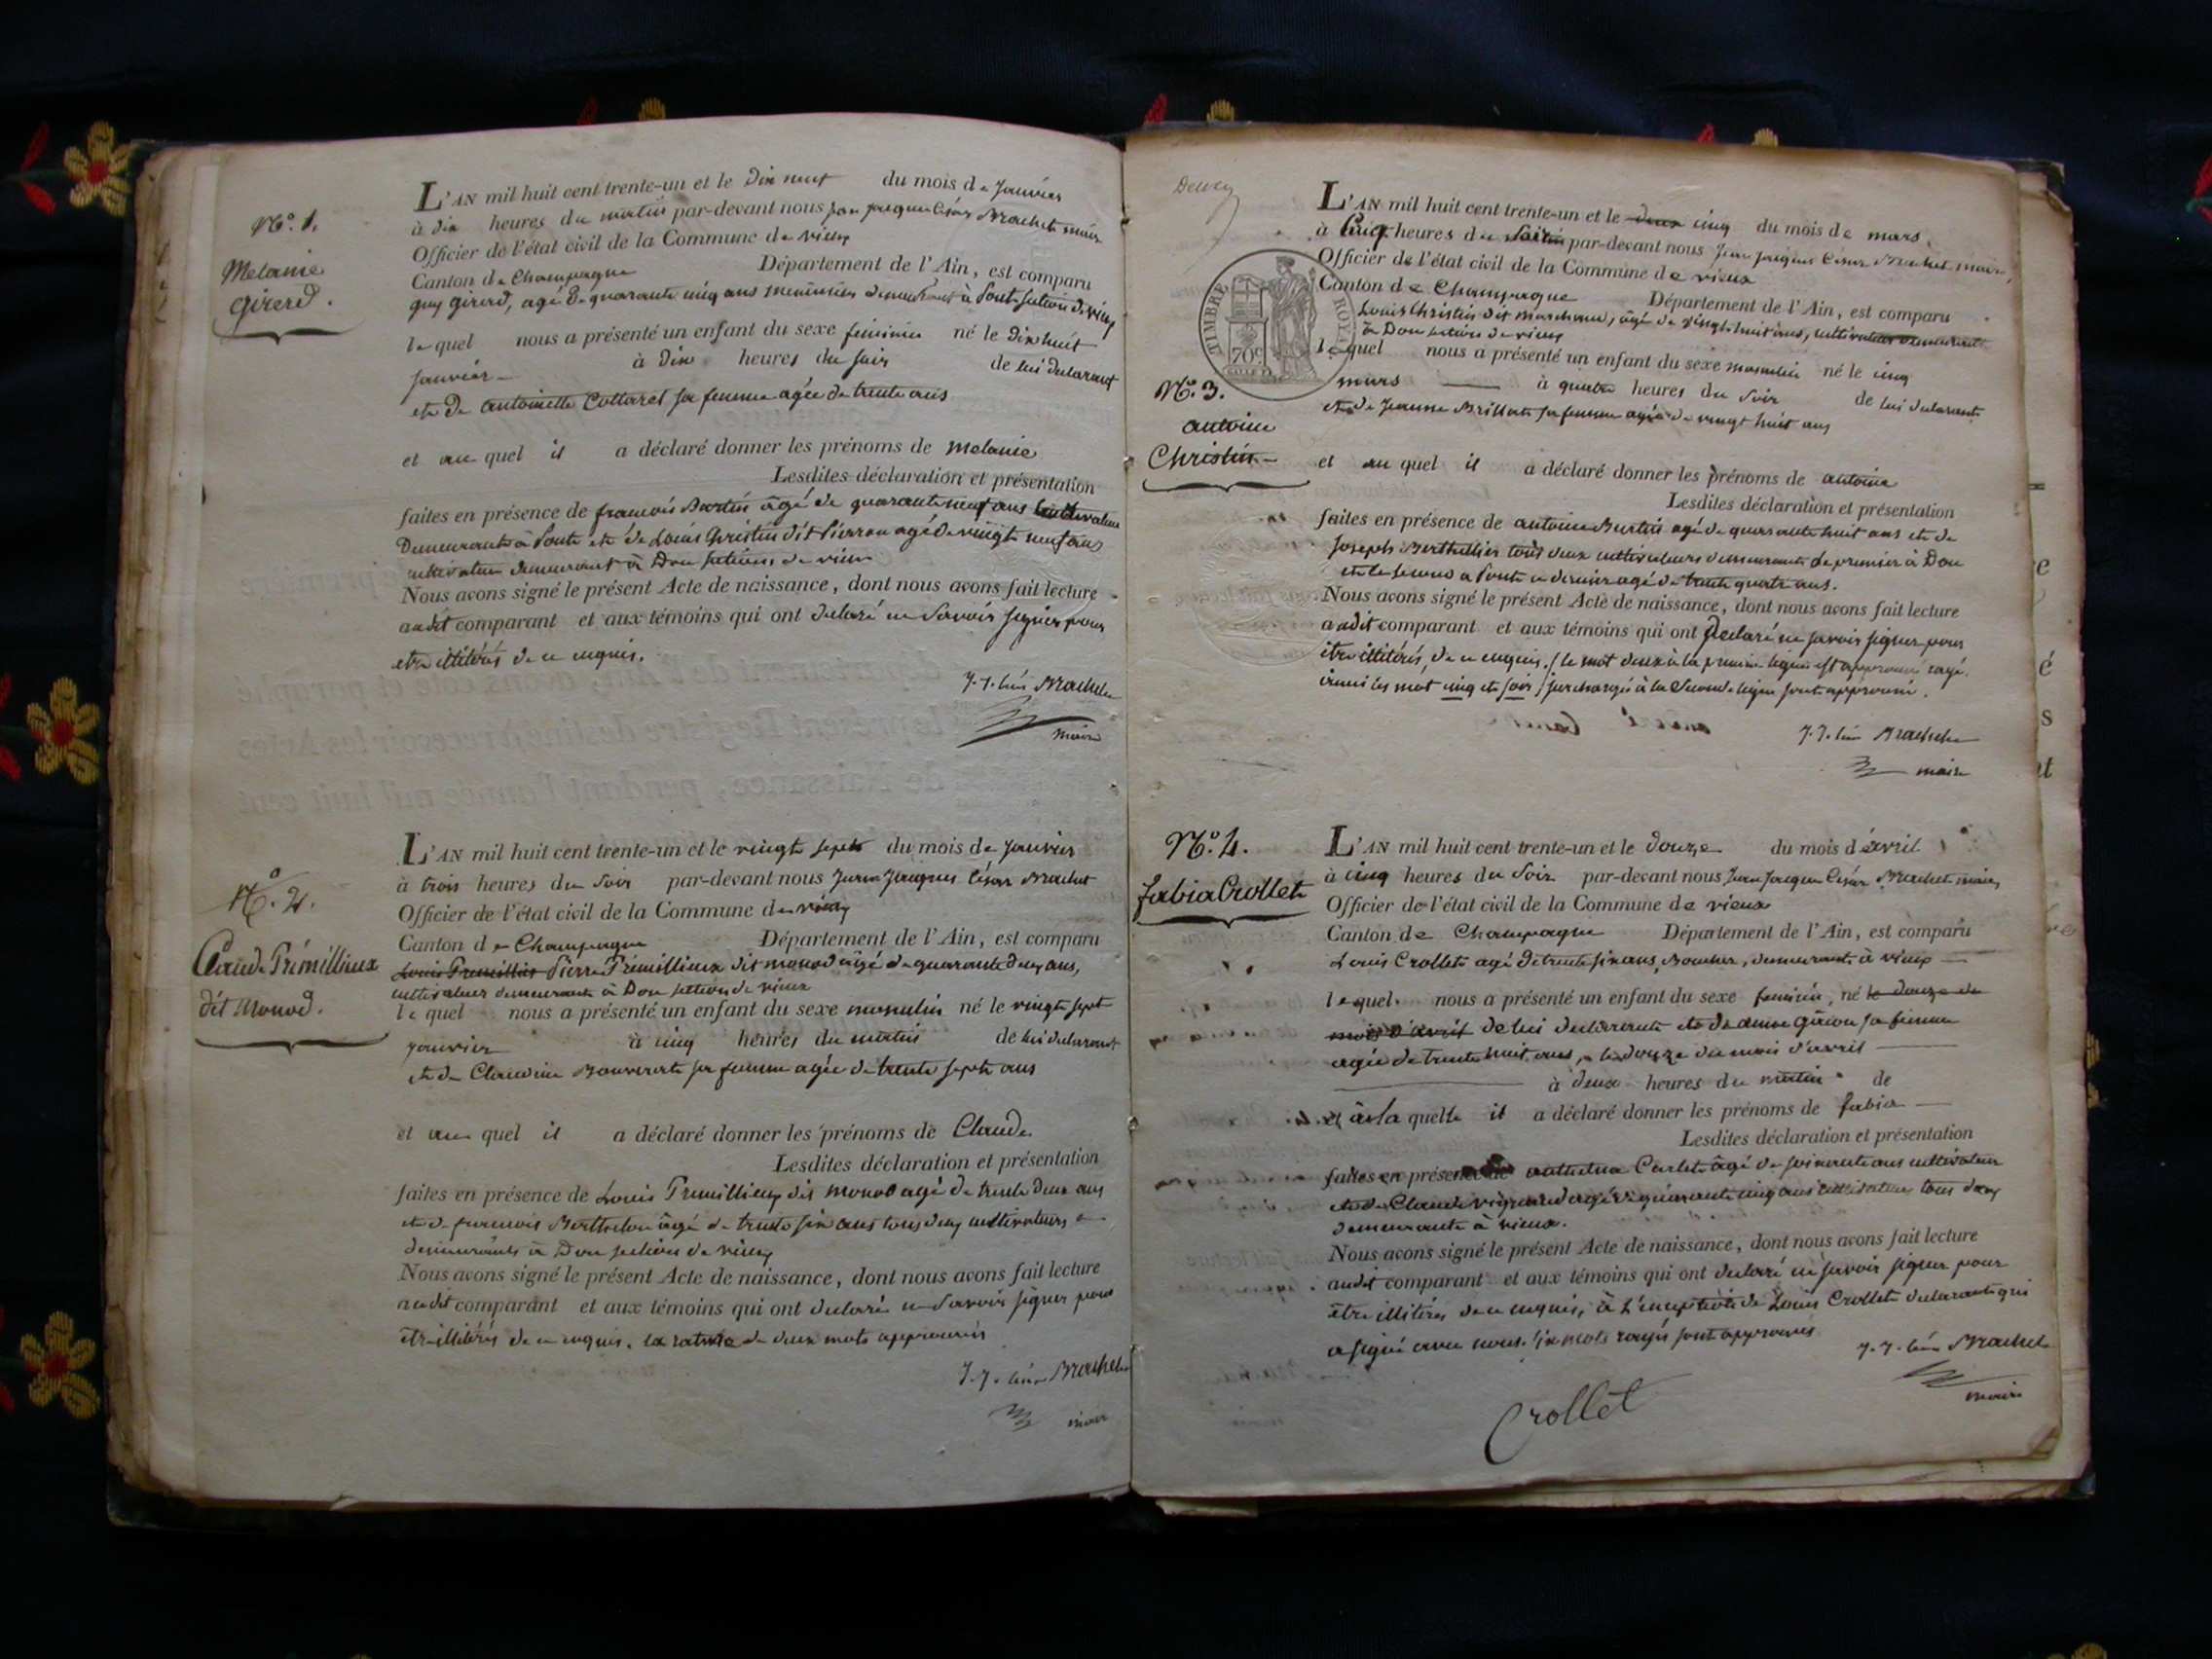 N.º 1.
Melanie
Girerd.
L'AN mil huit cent trente-un et le Dix neuf du mois de Janvier
à dix heures du matin par-devant nous jean jacques César Brachet maire
Officier de l'état civil de la Commune de vieux
Canton de Champagne Département de l'Ain, est comparu
guy girerd, agé de quarante cinq ans demeurant à Pont section de vieux
lequel nous a présenté un enfant du sexe féminin né le dix huit
janvier à dix heures du soir de lui déclarant
et de antoinette Cottaret sa femme agée de trente ans
et au quel il a déclaré donner les prénoms de melanie
Lesdites déclaration et présentation
faites en présence de francois Burtin âgé de quarante neuf ans cultivateur
Demeurant à Pont et de Louis Christin dit Pierron agé de vingt neuf ans
cultivateur demeurant à Don sections de vieux
Nous avons signé le présent Acte de naissance, dont nous avons fait lecture
audit comparant et aux témoins qui ont déclaré ne Savoir signer pour
etre illitérés de ce enquis.
J. J. César Brachet
maire
N.º 2.
Claude Prémillieux
dit Monod.
L'AN mil huit cent trente-un et le vingt sept du mois de Janvier
à trois heures du Soir par-devant nous Jean Jacques César Brachet
Officier de l'état civil de la Commune de vieux
Canton de Champagne Département de l'Ain, est comparu
Louis Premillieu Pierre Prémillieux dit monod âgé de quarante deux ans,
cultivateur demeurant à Don section de vieux
lequel nous a présenté un enfant du sexe masculin né le vingt sept
janvier à cinq heures du matin de lui déclarant
et de Claudine Bouvert sa femme agée de trente sept ans
et au quel il a déclaré donner les prénoms de Claude
Lesdites déclaration et présentation
faites en présence de Louis Premillieux dit monod agé de trente deux ans
et de francois Berthelon âgé de trente six ans tous deux cultivateurs
demeurants à Don section de vieux
Nous avons signé le présent Acte de naissance, dont nous avons fait lecture
audit comparant et aux témoins qui ont déclaré ne Savoir signer pour
être illitérés de ce enquis. la rature de deux mots approuvés
J. J. César Brachet
maire
Deux
TIMBRE ROYAL
70c
N.º 3.
antoine
Christin
L'AN mil huit cent trente-un et le deux cinq du mois de mars
à Cinq heures du Soir par-devant nous Jean Jacques César Brachet maire,
Officier de l'état civil de la Commune de vieux
Canton de Champagne Département de l'Ain, est comparu
Louis Christin dit marchand, âgé de vingt huit ans, cultivateur demeurant
à Don section de vieux
lequel nous a présenté un enfant du sexe masculin né le cinq
mars à quatre heures du Soir de lui déclarant
et de Jeanne Brillat sa femme agée de vingt huit ans
et au quel il a déclaré donner les prénoms de antoine
Lesdites déclaration et présentation
faites en présence de antoine Burtin agé de quarante huit ans et de
Joseph Berthellier tous deux cultivateurs demeurants le premier à Don
et le second à Pont ce dernier agé de trente quatre ans.
Nous avons signé le présent Acte de naissance, dont nous avons fait lecture
audit comparant et aux témoins qui ont Declaré ne savoir signer pour
être illitérés, de ce enquis. / le mot deux à la premiere ligne est approuvé rayé.
ainsi les mot cinq et soir / surchargés à la Seconde ligne sont approuvé.
J. J. César Brachet
maire
N.º 4.
fabia Crollet
L'AN mil huit cent trente-un et le douze du mois d'avril
à cinq heures du Soir par-devant nous Jean Jacques César Brachet maire,
Officier de l'état civil de la Commune de vieux
Canton de Champagne Département de l'Ain, est comparu
Louis Crollet agé de trente six ans, Boucher, demeurant à vieux
lequel nous a présenté un enfant du sexe feminin, né le douze du
mois d'avril de lui declarant et de sa femme
agée de trente huit ans, le douze du mois d'avril
à deux heures du matin de
et à la quelle il a déclaré donner les prénoms de fabia
Lesdites déclaration et présentation
faites en présence de anthelme Carlet âgé de soixante ans cultivateur
et de Claude vignard agé de quarante cinq ans cultivateur tous deux
demeurants à vieux.
Nous avons signé le présent Acte de naissance, dont nous avons fait lecture
audit comparant et aux témoins qui ont déclaré ne savoir signer pour
être illitérés de ce enquis, à l'exception de Louis Crollet declarant qui
a signé avec nous. six mots rayés sont approuvés
J. J. César Brachet
maire
Crollet